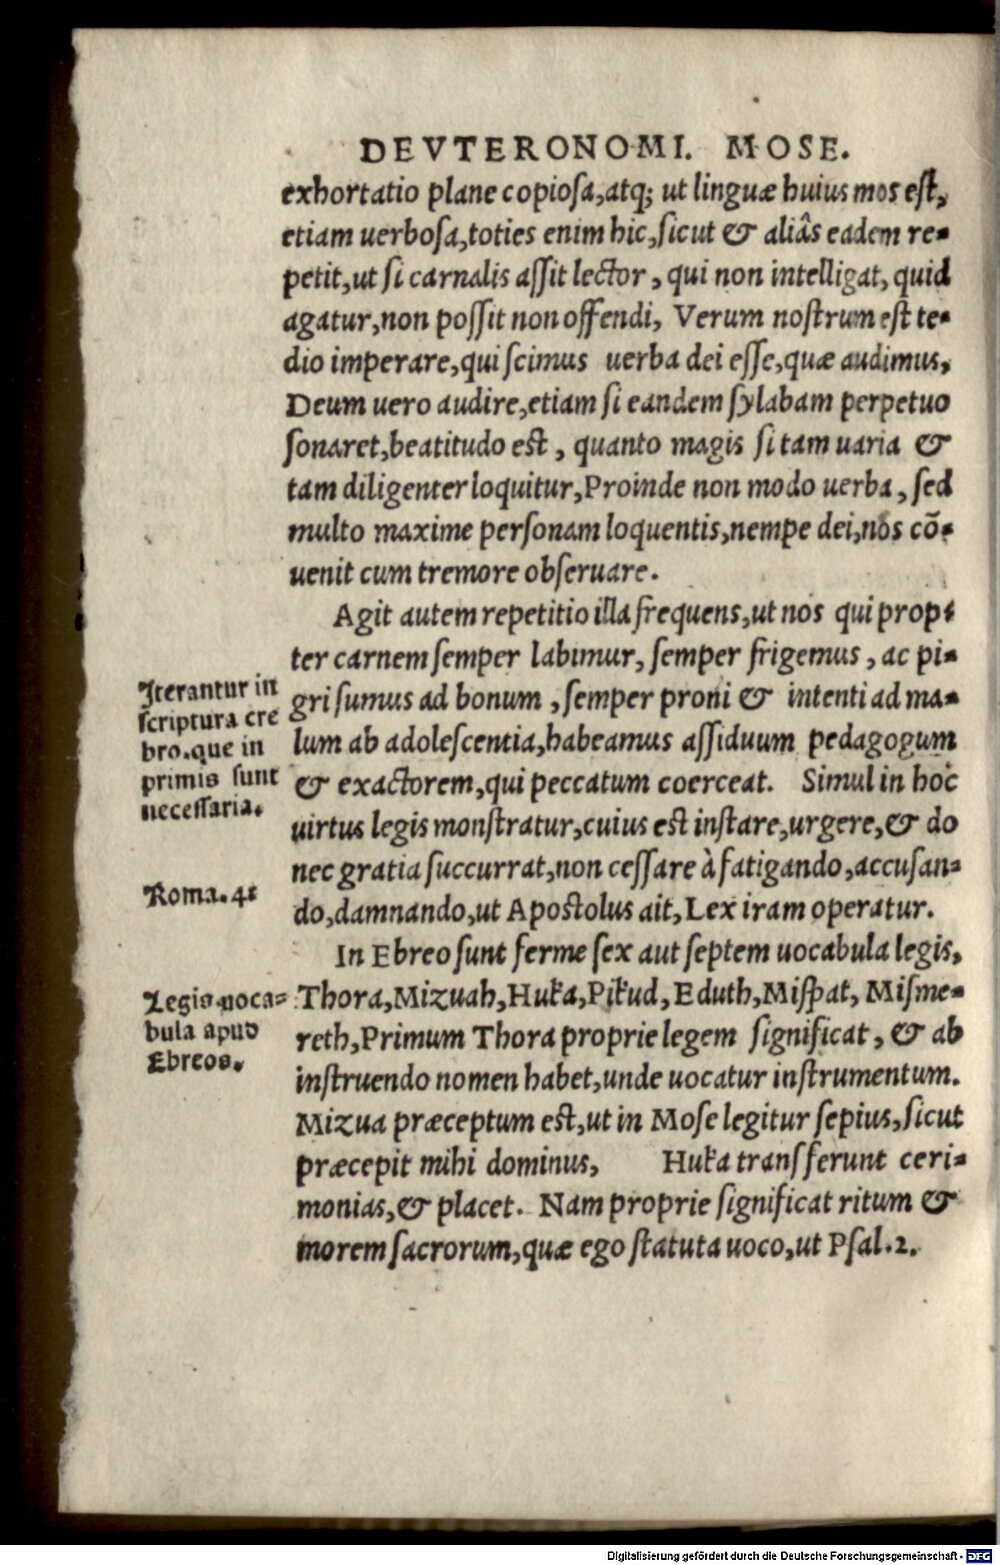 DEVTERONOMI. MOSE.
exhortatio plane copiosa, atq; ut linguæ huius mos est,
etiam uerbosa, toties enim hic, sicut & aliâs eadem re-
petit, ut si carnalis assit lector, qui non intelligat, quid
agatur, non possit non offendi, Verum nostrum est te-
dio imperare, qui scimus uerba dei esse, quæ audimus,
Deum uero audire, etiam si eandem sylabam perpetuo
sonaret, beatitudo est, quanto magis si tam uaria &
tam diligenter loquitur, Proinde non modo uerba, sed
multo maxime personam loquentis, nempe dei, nos cõ-
uenit cum tremore obseruare.
Agit autem repetitio illa frequens, ut nos qui prop-
ter carnem semper labimur, semper frigemus, ac pi-
gri sumus ad bonum, semper proni & intenti ad ma-
lum ab adolescentia, habeamus assiduum pedagogum
& exactorem, qui peccatum coerceat. Simul in hoc
uirtus legis monstratur, cuius est instare, urgere, & do
nec gratia succurrat, non cessare à fatigando, accusan-
do, damnando, ut Apostolus ait, Lex iram operatur.
In Ebreo sunt ferme sex aut septem uocabula legis,
Thora, Mizuah, Huka, Pikud, Eduth, Mispat, Misme-
reth, Primum Thora proprie legem significat, & ab
instruendo nomen habet, unde uocatur instrumentum.
Mizua præceptum est, ut in Mose legitur sepius, sicut
præcepit mihi dominus, Huka transferunt ceri-
monias, & placet. Nam proprie significat ritum &
morem sacrorum, quæ ego statuta uoco, ut Psal. 2.
Iterantur in
scriptura cre
bro. que in
primis sunt
necessaria.
Roma. 4
Legis uoca-
bula apud
Ebreos.
Digitalisierung gefördert durch die Deutsche Forschungsgemeinschaft - DFG